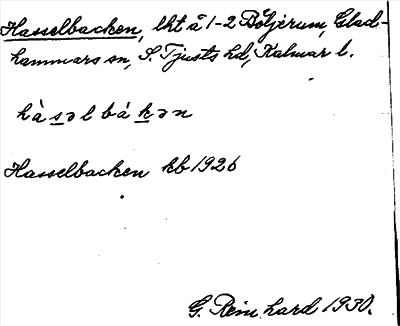 Hasselbacken, lht å 1-2 Böljerum, Glad-
hammars sn, S. Tjusts hd, Kalmar l.
hàsəlbákən
Hasselbacken kb 1926
G. Reinhard 1930.